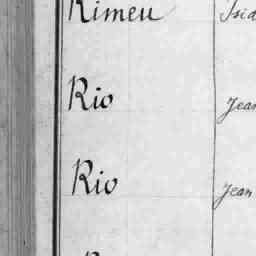 Rimeu
Rio Jean
Rio Jean